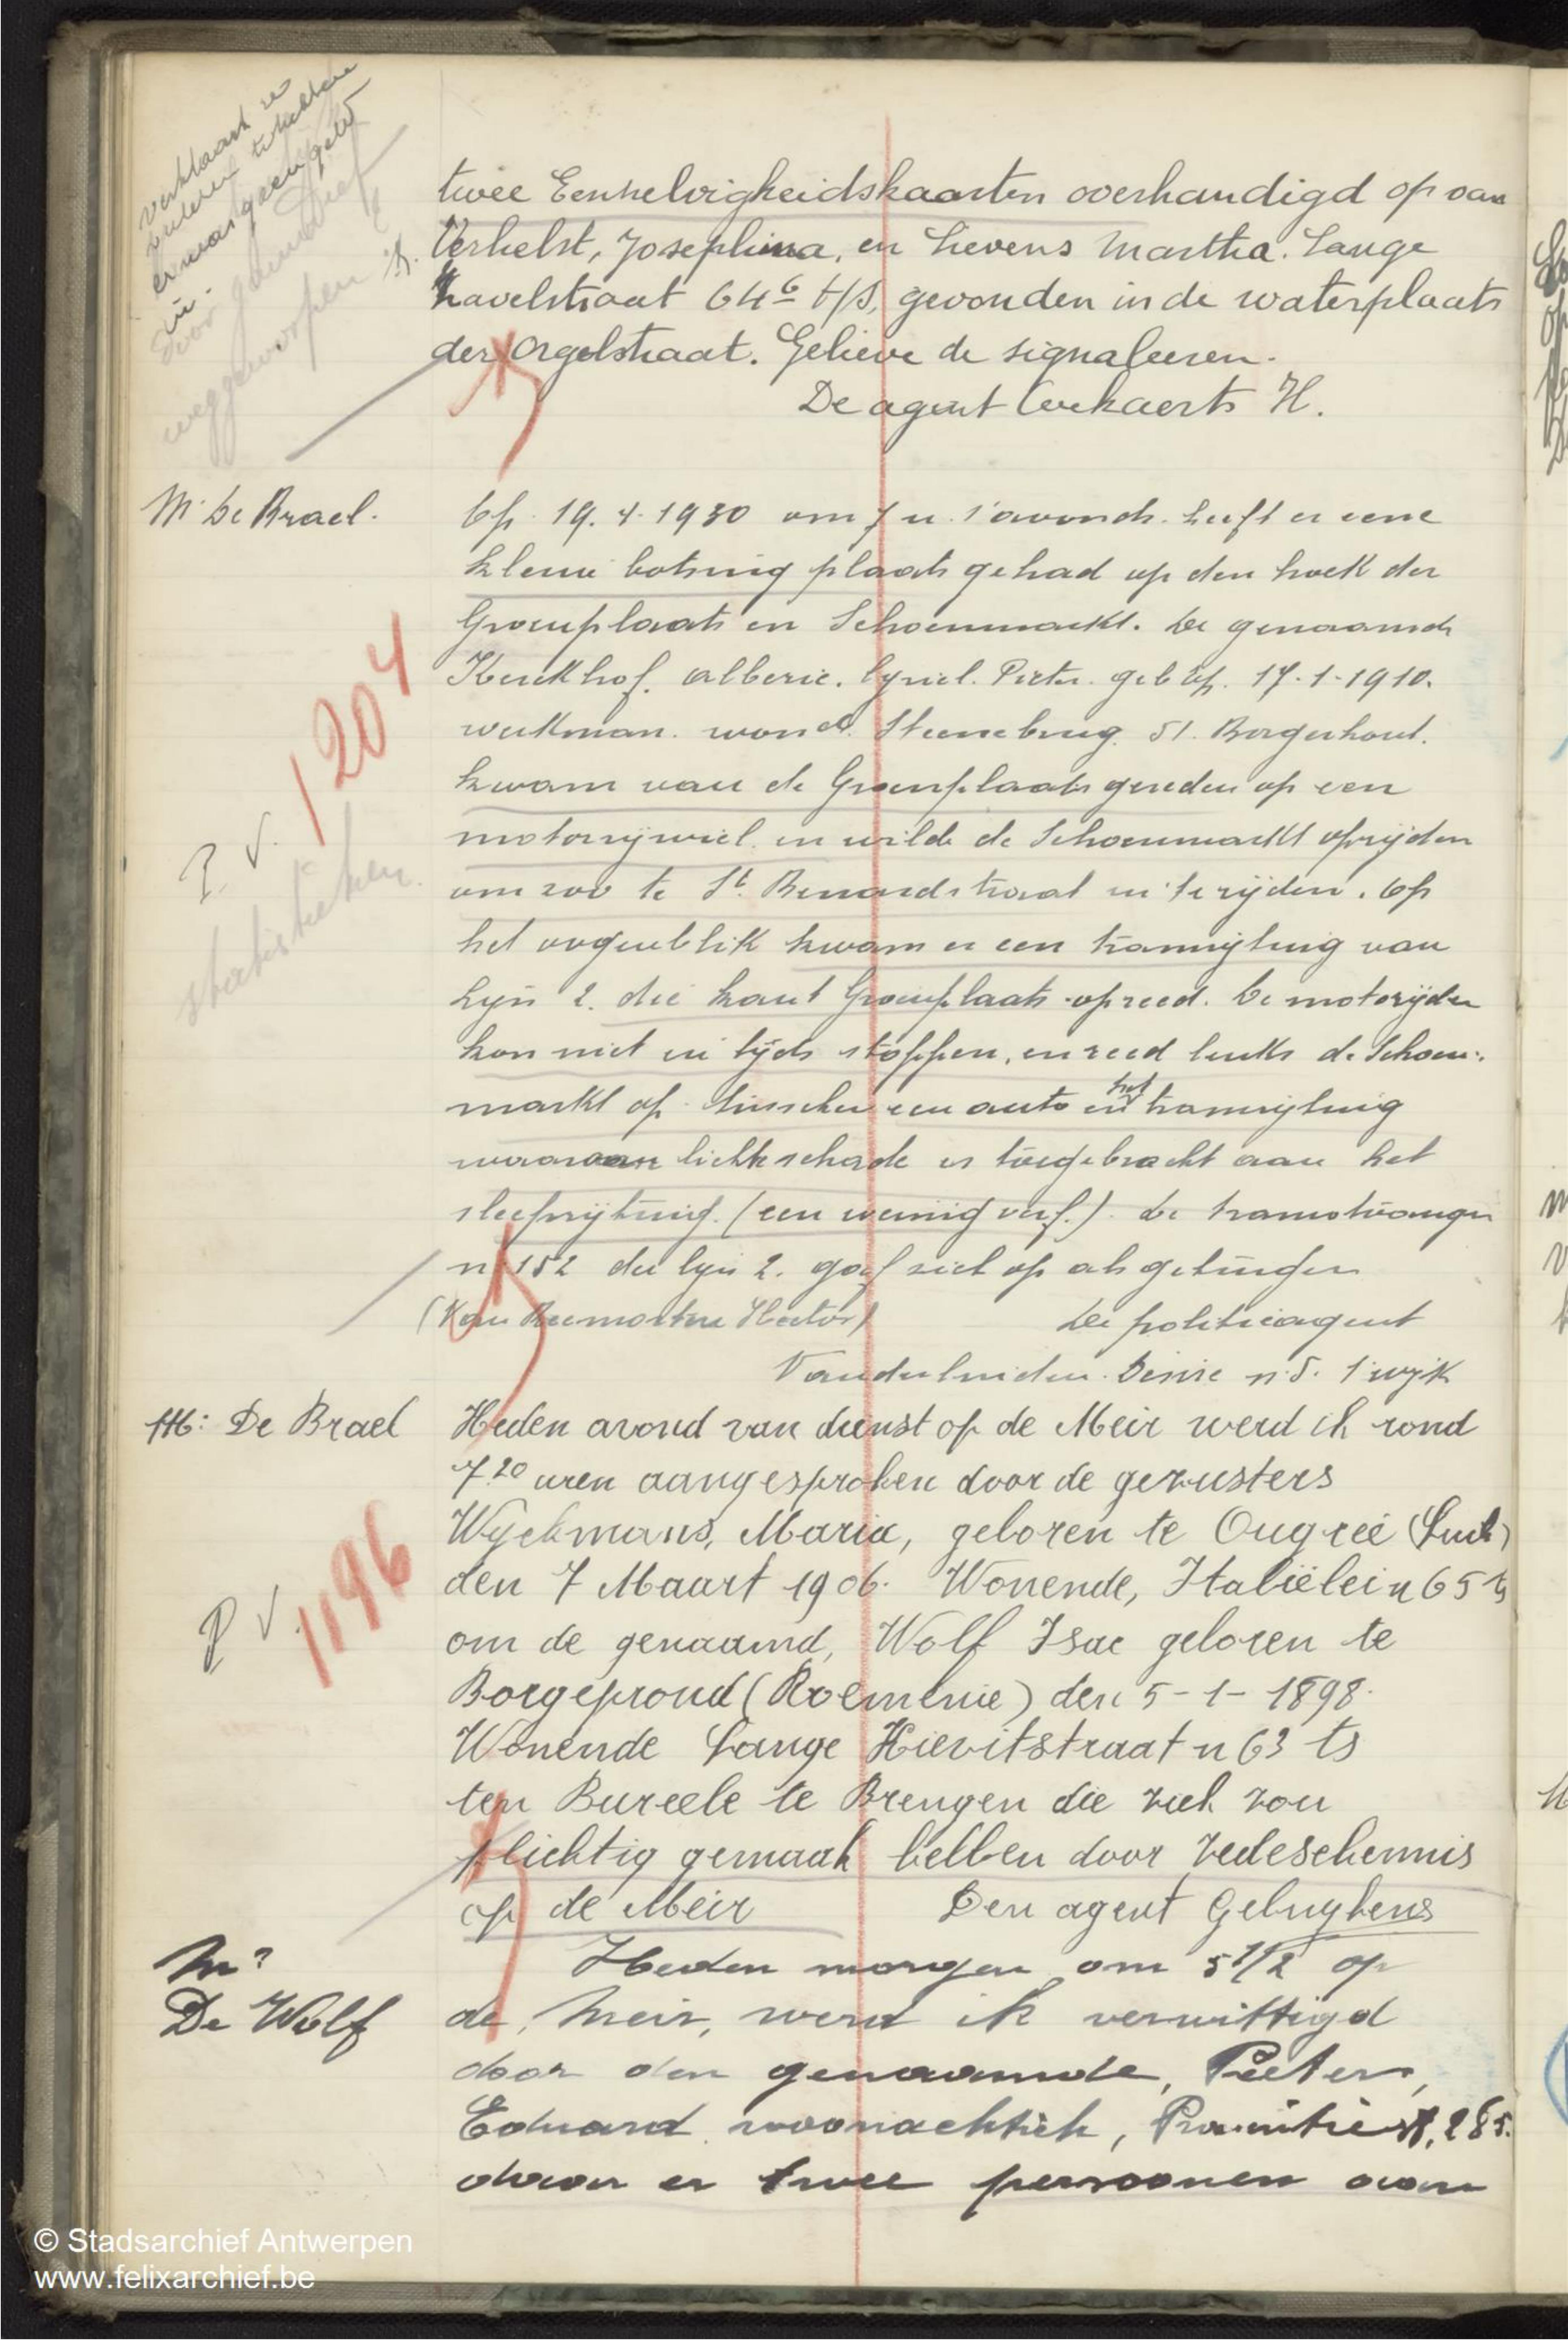 verklaart ze
te hebben
er was geen geld
in.
door gauwdief
weggeworpen
twee Eenzelvigheidskaarten overhandigd op van
Verhelst, Josephina, en Lievens Martha. Lange
Kavelstraat 64 b t/s, gevonden in de waterplaats
der Orgelstraat. Gelieve de signaleeren.
De agent H.
Mr De Brael.
Op 19.4.1930 om 7 u. s'avonds heeft er eene
kleine botsing plaats gehad op den hoek der
Groenplaats en Schoenmarkt. De genaamde
Kerckhof. Alberic. Cyriel. Pieter. geb Ap. 17-1-1910.
werkman. wond. Steenebrug. 51. Borgerhout.
kwam van de Groenplaats gereden op een
motorrijwiel en wilde de Schoenmarkt oprijden
om zoo te St. Bernardstraat in te rijden. Op
het oogenblik kwam er een tramrijtuig van
Lijn 2. die kant Groenplaats opreed. De motorijder
kon niet in tijds stoppen, en reed links de Schoen-
markt op tusschen een auto en het tramrijtuig
waarvan lichte schade is toegebracht aan het
sleeprijtuig. (een weinig verf.) De
n 152 der lijn 2. gaf zich op als getuigen
(Van Hector)
De politieagent
Vanderlinden. Desire n. 5. 1 wijk
P.V. 1204
statistieken.
M: De Brael
Heden avond van dienst op de Meir werd ik rond
7.20 uren aangesproken door de gezusters
Wyckmans, Maria, geboren te Ougreé (Luik)
den 7 Maart 1906. Wonende, Italiëlei n 65 ts
om de genaamd, Wolf Isac geloren te
Borgeprond (Roemenie) den 5-1-1898.
Wonende Lange Kievitstraat n 63 ts
ten Bureele te Brengen die zich zou
plichtig gemaak hebben door zedeschennis
op de Meir
Den agent Gebruykens
P V. 1196
Mr
De Wolf
Heden morgen om 5 1/2 op
de, Meir, werd ik verwittigd
door den genaamde, Pieters,
Eduard woonachtich, Provinciest, 285.
daar er twee persoonen aan
© Stadsarchief Antwerpen
www.felixarchief.be